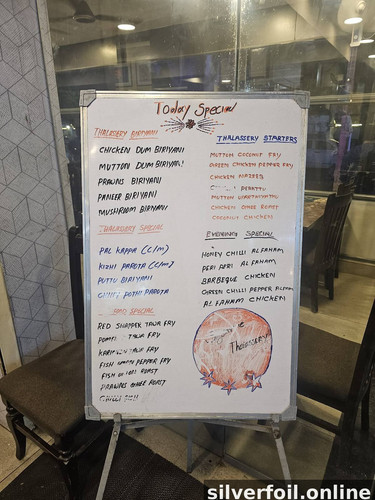 Today Special
THALASSERY BIRIYANI
CHICKEN DUM BIRIYANI
MUTTON DUM BIRIYANI
PRAWNS BIRIYANI
PANEER BIRIYANI
MUSHROOM BIRIYANI
THALASSERY SPECIAL
PAL KAPPA (C/M)
KIZHI PAROTA (C/M)
PUTTU BIRIYANI
POTHI PAROTA
SPECIAL
RED SNAPPER TAWA FRY
TAWA FRY
FRY
FISH PEPPER FRY
FISH ROAST
PRAWNS GHEE ROAST
CHILLI FISH
THALASSERY STARTERS
MUTTON COCONUT FRY
GREEN CHICKEN PEPPER FRY
CHICKEN
PERATTU
MUTTON VARATTIYATHU
CHICKEN GHEE ROAST
COCONUT CHICKEN
EVENING SPECIAL
HONEY CHILLI ALFAHAM
PERI PERI AL FAHAM
BARBEQUE CHICKEN
GREEN CHILLI PEPPER ALFAHAM
AL FAHAM CHICKEN
Thalassery
silverfoil.online